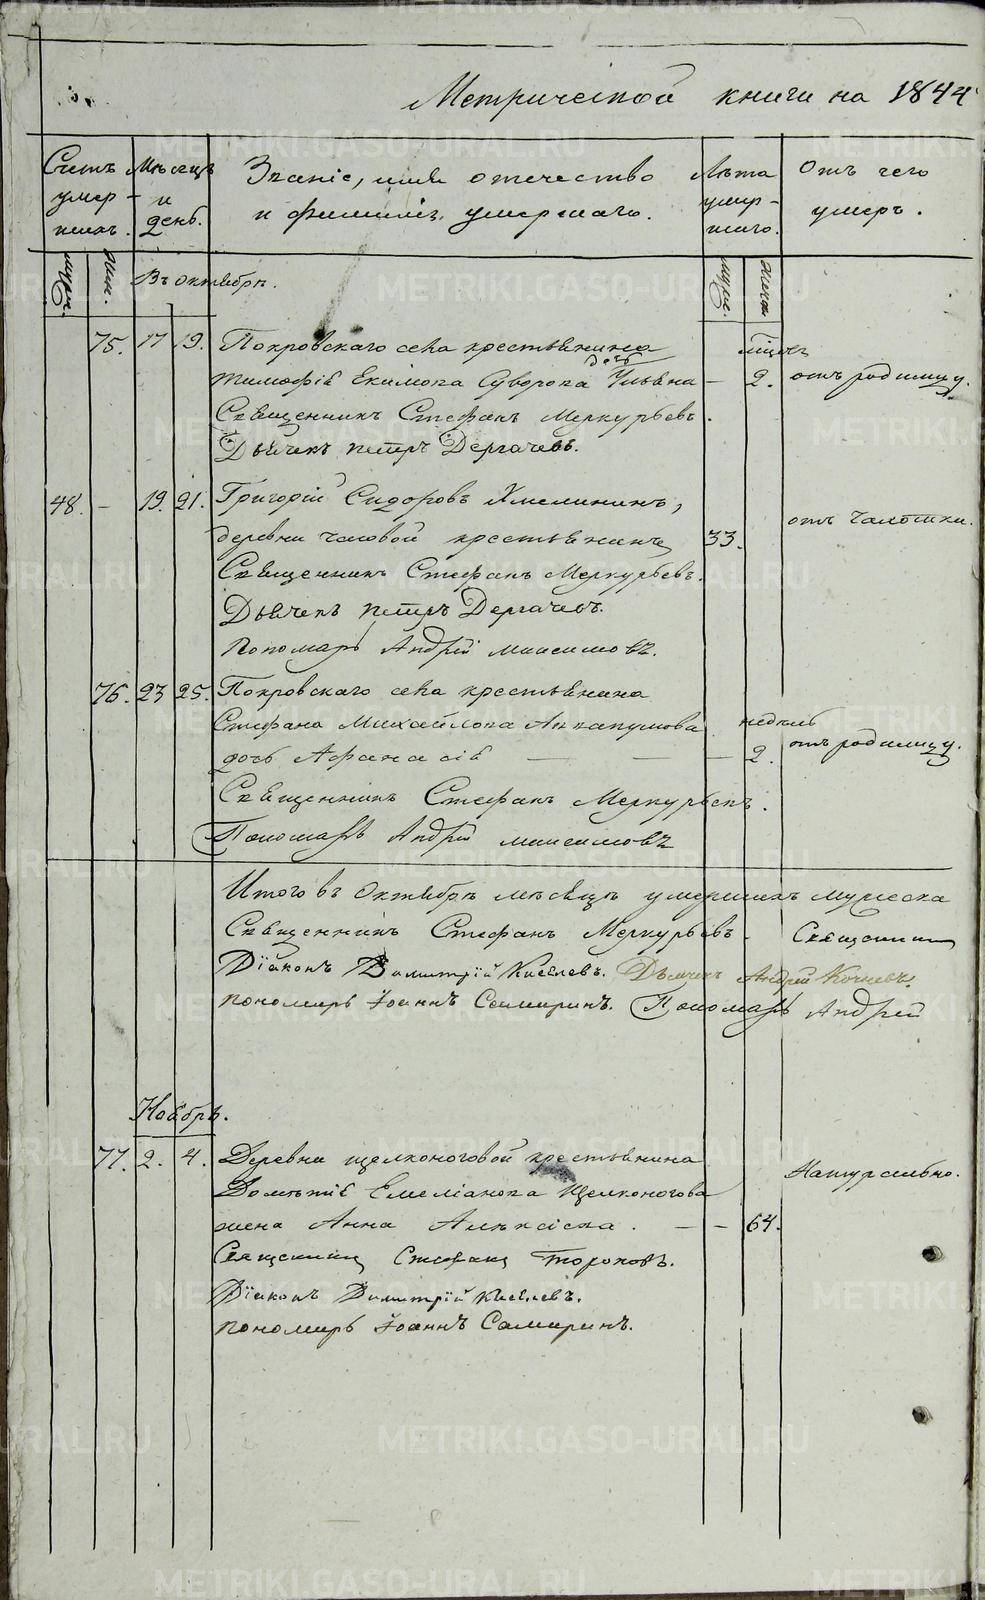 Метрической книги на 1844
Счетъ умер- шихъ.
Мѣсяцъ и день.
Званіе, имя отечество и фамилія умершаго.
Лѣта умер- шаго.
Отъ чего умеръ.
муж. жен. Въ октябрѣ. муж. женск.
75. 17 19. Покровскаго села крестьянина мѣсяц
Тимофѣя Екимова Суворова дочь Ульяна — 2. отъ родимцу.
Священникъ Стефанъ Меркурьевъ.
Дьячекъ Петръ Дергачевъ.
48. — 19. 21. Григорій Сидоровъ Хмелининъ,
деревни Часовой крестьянинъ 33. отъ чахотики.
Священникъ Стефанъ Меркурьевъ.
Дьячекъ Петръ Дергачевъ.
Пономарь Андрей Максимовъ.
76. 23 25. Покровскаго села крестьянина
Стефана Михайлова недель
дочь Афанасія — — — 2. отъ родимцу.
Священникъ Стефанъ Меркурьевъ.
Пономарь Андрей Максимовъ
Итого въ Октябрѣ мѣсяцѣ умершихъ мужеска
Священникъ Стефанъ Меркурьевъ. Священник
Діаконъ Димитрій Киселевъ. Дьячекъ Андрей Кочневъ.
Пономарь Іоаннъ Самаринъ. Пономарь Андрей
Ноябрь.
77. 2. 4. Деревни Щелконоговой крестьянина Натурально.
Дометія Емеліанова Щелконогова
жена Анна Алексіева. — — 64.
Священникъ Стефанъ Тороповъ.
Діаконъ Димитрій Киселевъ.
Пономарь Іоаннъ Самаринъ.
METRIKI.GASO-URAL.RU